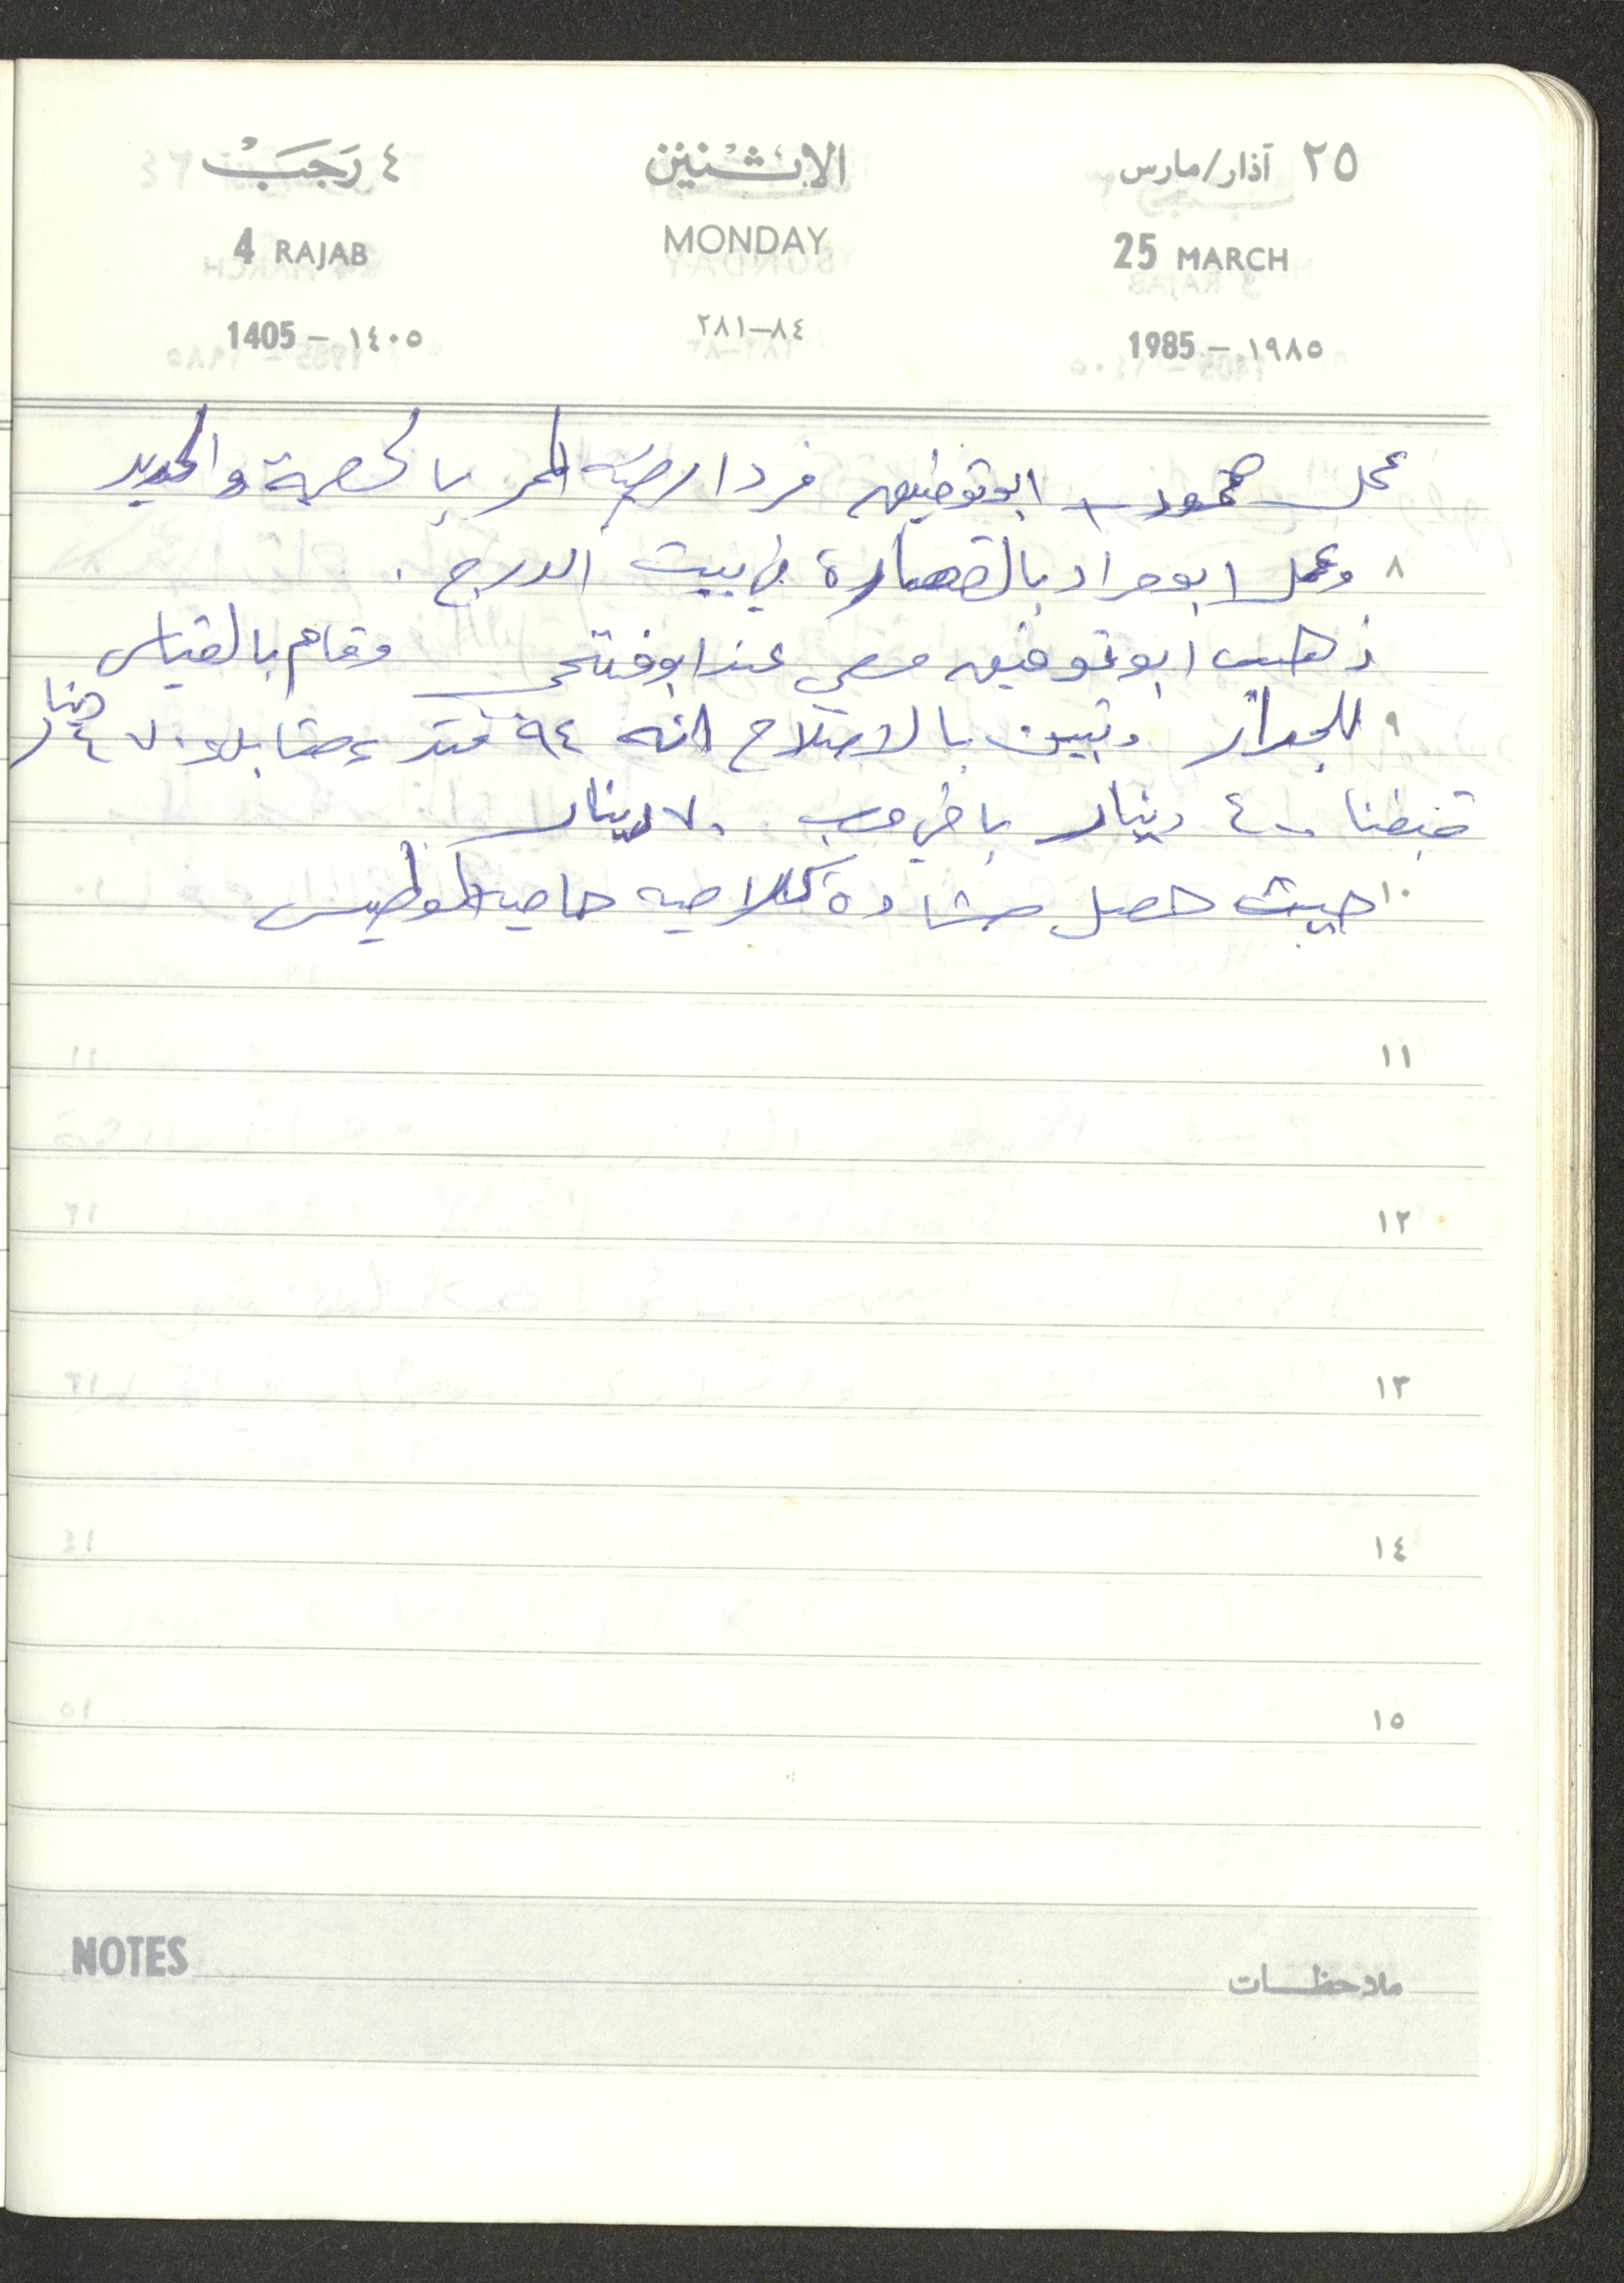 ٢٥ آذار/مارس الاثنين ٤ رجب
25 MARCH MONDAY 4 RAJAB
1985 – ١٩٨٥ ٨٤–٢٨١ 1405 – ١٤٠٥
عمل محمود + ابو توفيق في دار الممر بالحصمة والحديد
٨ وعمل ابو مراد بالقصارة في بيت الدرج .
ذهب ابو توفيق معي عند ابو فتحي وقام بالقياس
٩ للجدار وتبين انه ٩٤ متر مقابل ٤٧٠ دينار
قبضنا ٤٠٠ دينار باقي ٧٠ دينار
١٠ حيث حصل مشادة كلامية حامية الوطيس
١١
١٢
١٣
١٤
١٥
NOTES ملاحظات